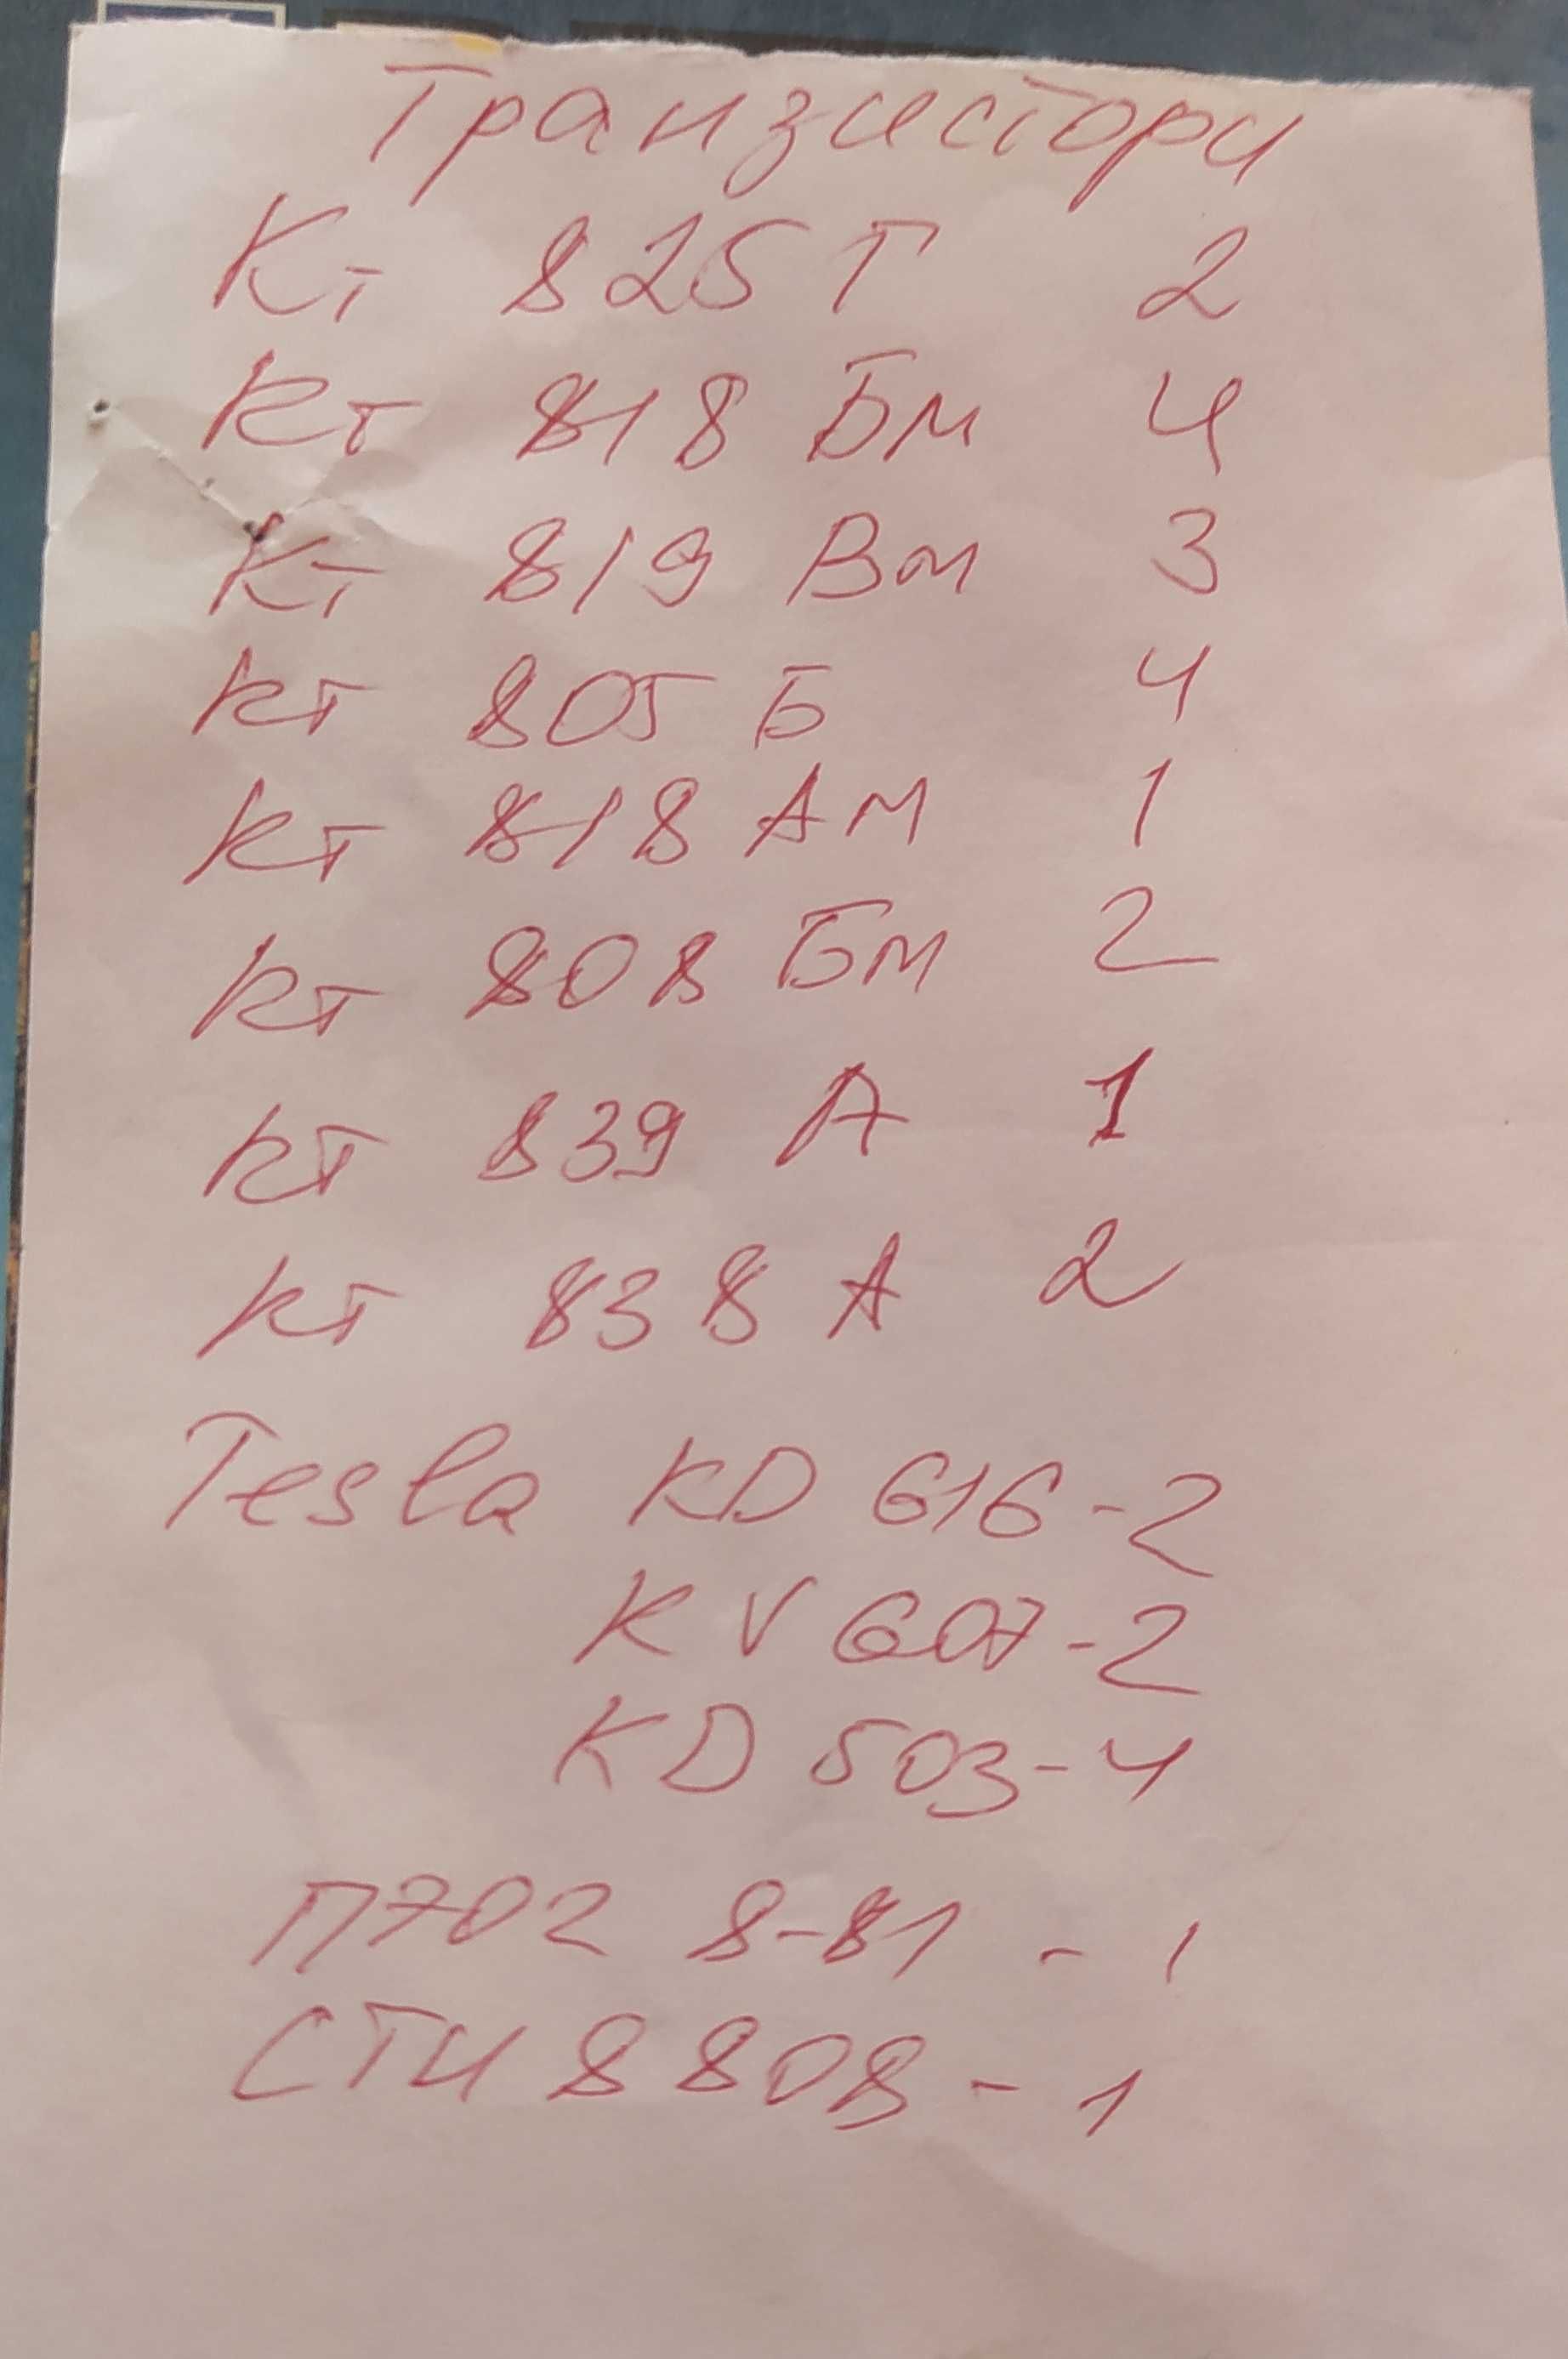 Транзистори
Кт 825 Г 2
Кт 818 Бм 4
Кт 819 Вм 3
Кт 805 Б 4
Кт 818 АМ 1
Кт 808 Бм 2
Кт 839 А 1
Кт 838 А 2
Tesla KD 616-2
KV 607-2
KD 503-4
П702 8-81 - 1
СТИ 8 808 - 1